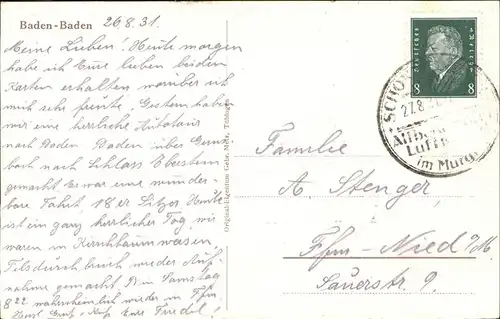 Baden-Baden 26.8.31.
Meine Lieben! Heute morgen
habe ich Eure lieben beiden
Karten erhalten worüber ich
mich sehr freute. Gestern haben
wir eine herrliche
nach Baden Baden über Gerns
bach nach Schloss Eberstein
gemacht. Es war eine wunder-
bare Fahrt, 18er Sitzer. Heute
ist ein ganz herrlicher Tag, wir
waren in Kirschbaumwasen,
wieder Auf-
nahme gemacht. Bin Samstag
8 22 wahrscheinlich wieder in Ffm
Gruß + Kuß Eure Friedel!
Original-Eigentum Gebr. Metz, Tübingen
DEUTSCHES REICH
8 8
SCHÖN
27.8.
Luftk
im Murg
Familie
A. Stenger
Ffm-Nied a/M.
Sauerstr 9.